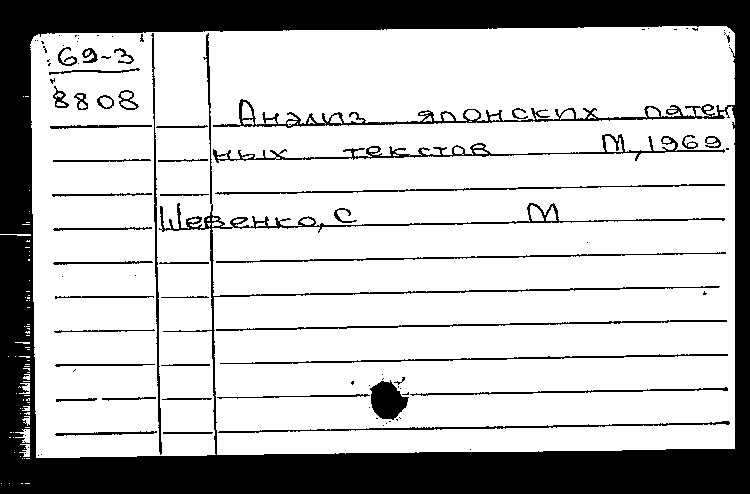 69-3
8808
Анализ японских патент
ных текстов М, 1969.
Шевенко, С М